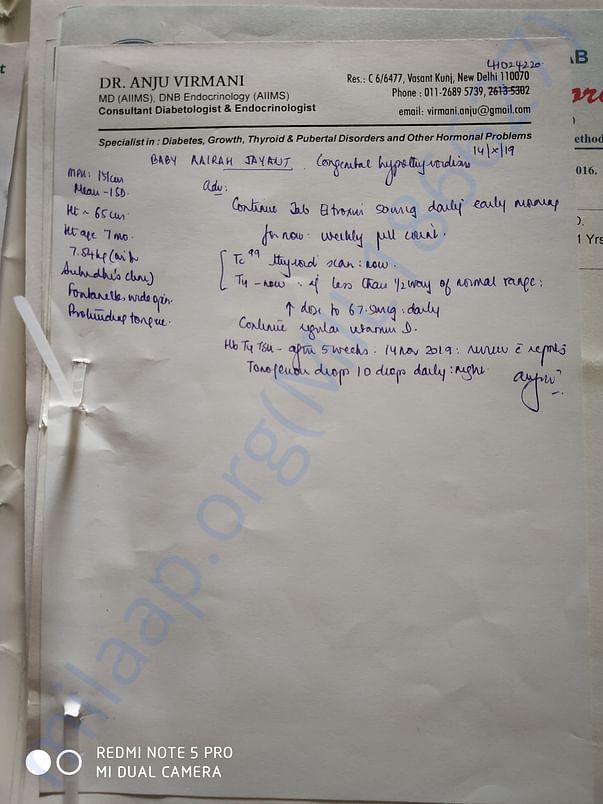 41024220
DR. ANJU VIRMANI
MD (AIIMS), DNB Endocrinology (AIIMS)
Consultant Diabetologist & Endocrinologist
Res.: C 6/6477, Vasant Kunj, New Delhi 110070
Phone : 011-2689 5739, 2613 5302
email: virmani.anju@gmail.com
Specialist in : Diabetes, Growth, Thyroid & Pubertal Disorders and Other Hormonal Problems
14/X/19
BABY RAIRAH JAYANT. Congenital hypothyroidism
MPH: 151cm
Mean -1SD.
Ht ~ 65 cm
Ht age 7 mo.
7.54kg
clinic)
Fontanelles wide open.
Protruding tongue.
Adv:
Continue Tab Eltroxin 50mcg daily early morning
for now: weekly pill count.
Tc 99 thyroid scan: now.
T4 - now: if less than 1/2 way of normal range:
↑ dose to 67.5mcg: daily
Continue regular vitamin D.
Hb T4 TSH - after 5 weeks. 14 Nov 2019: review c reports
Tonoferon drops 10 drops daily: night.
AB
ethod
016.
1 Yrs
milaap.org
REDMI NOTE 5 PRO
MI DUAL CAMERA